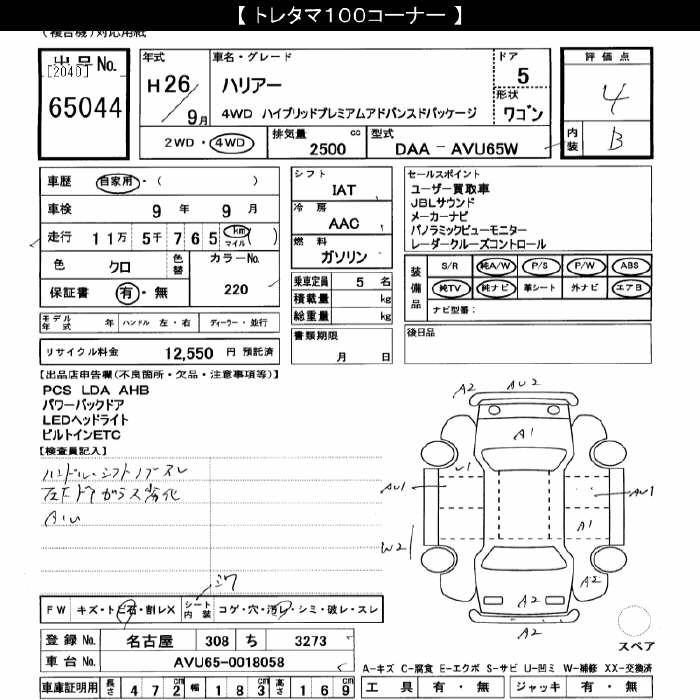 【 トレタマ100コーナー 】
(複合機)対応用紙
出品No. [2040] 65044
年式 H26/9月
車名・グレード ハリアー
4WD ハイブリッドプレミアムアドバンスドパッケージ
ドア 5
形状 ワゴン
評価点 4
内装 B
2WD・4WD
排気量 2500 cc
型式 DAA - AVU65W
車歴 自家用・( )
車検 9 年 9 月
走行 11万 5千 765 km マイル ( )
色 クロ 色替
カラーNo. 220
保証書 有・無
シフト IAT
冷房 AAC
燃料 ガソリン
乗車定員 5 名
積載量 kg
総重量 kg
書類期限 月 日
セールスポイント
ユーザー買取車
JBLサウンド
メーカーナビ
パノラミックビューモニター
レーダークルーズコントロール
装備品 S/R 純A/W P/S P/W ABS
純TV 純ナビ 革シート 外ナビ エアB
ナビ型番:
後日品
モデル年式 年 ハンドル 左・右 ディーラー・並行
リサイクル料金 12,550 円 預託済
【出品店申告欄(不良箇所・欠品・注意事項等)】
PCS LDA AHB
パワーバックドア
LEDヘッドライト
ビルトインETC
【検査員記入】
ハンドル・シフトノブスレ
左Fドアガラス劣化
A1U
A2 AU2
A1
U1
AU1 AU1
A1
W2
A2
A2
A2
スペア
シワ
FW キズ・トビ石・割レX
シート内装 コゲ・穴・汚レ・シミ・破レ・スレ
登録No. 名古屋 308 ち 3273
車台No. AVU65-0018058
車庫証明用 長さ 472cm 幅 183cm 高さ 169cm
A-キズ C-腐食 E-エクボ S-サビ U-凹ミ W-補修 XX-交換済
工具 有・無 ジャッキ 有・無